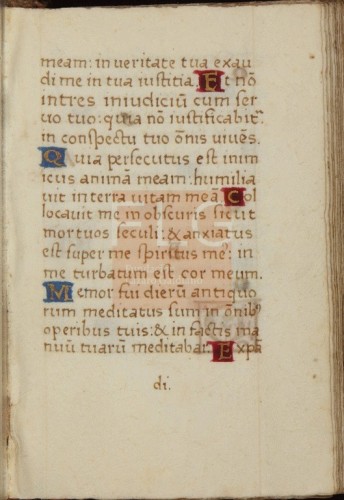 meam: in veritate tua exau
di me in tua iustitia. Et nõ
intres in iudiciũ cum ser
vo tuo: quia nõ iustificabit᷑
in conspectu tuo õnis vivẽs.
Quia persecutus est inim
icus animã meam: humilia
vit in terra vitam meã. Col
locavit me in obscuris sicut
mortuos seculi: & anxiatus
est super me spiritus me᷒: in
me turbatum est cor meum.
Memor fui dierũ antiquo
rum meditatus sum in õnib᷒
operibus tuis: & in factis ma
nuũ tuarũ meditabar. Expã
di.